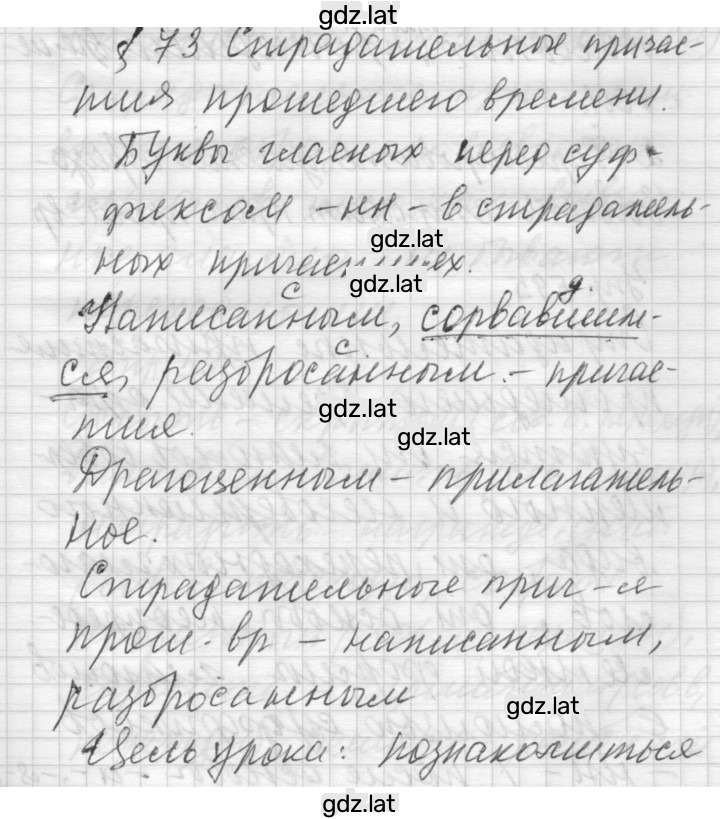 gdz.lat
§ 73 Страдательные причас-
тия прошедшего времени.
Буквы гласных перед суф-
фиксом -нн- в страдатель-
gdz.lat
ных причастиях.
gdz.lat
с д.
Написанным, сорвавшим-
с
ся, разбросанным - причас-
gdz.lat
тия.
gdz.lat
Драгоценным - прилагатель-
ное.
Страдательные прич-я
прош. вр - написанным,
разбросанным
gdz.lat
Цель урока: познакомиться
gdz.lat